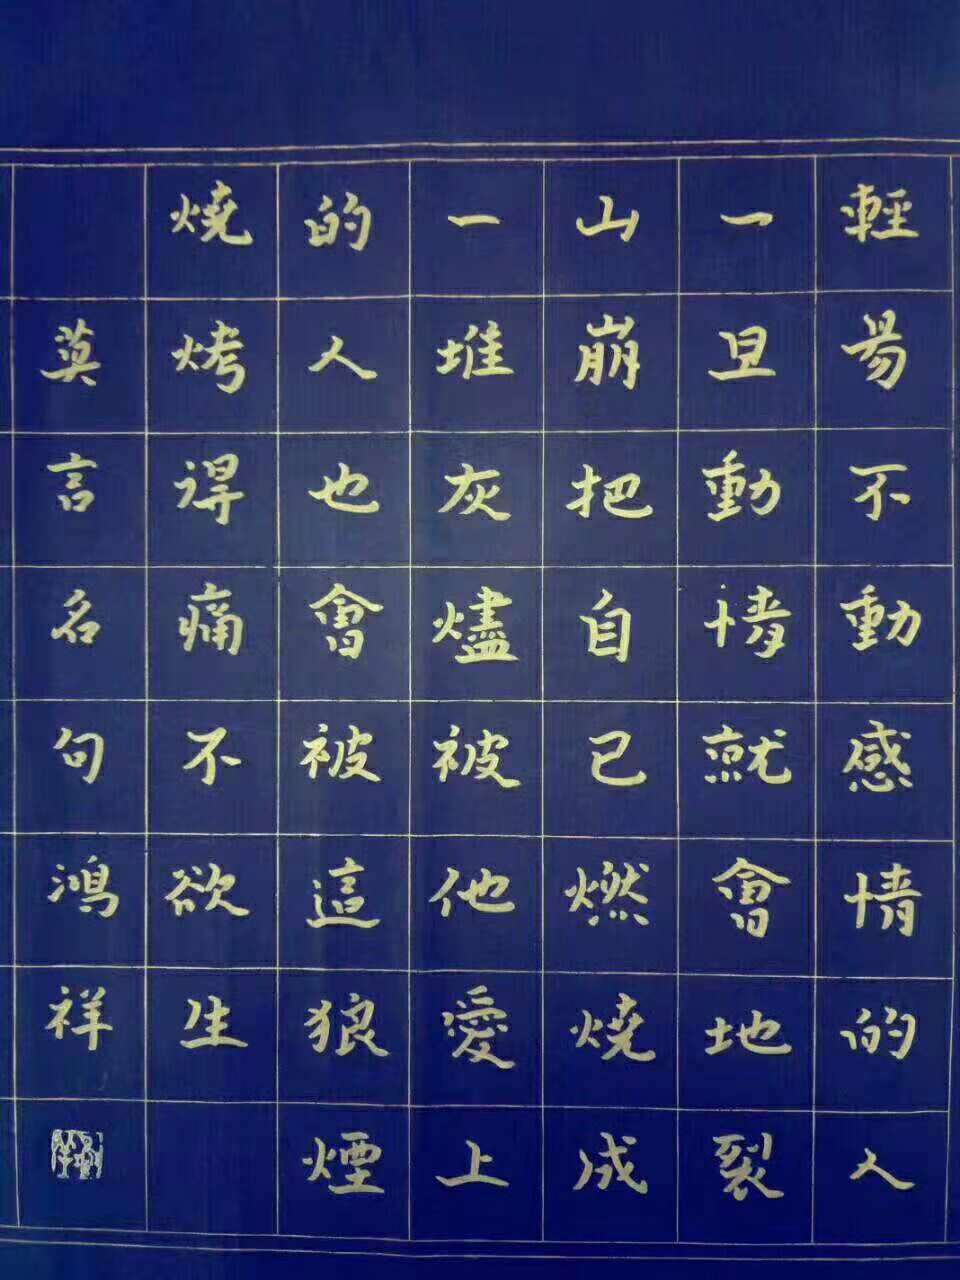 輕易不動感情的人
一旦動情就會地裂
山崩把自己燃燒成
一堆灰燼被他愛上
的人也會被這狼煙
燒烤得痛不欲生
莫言名句鴻祥